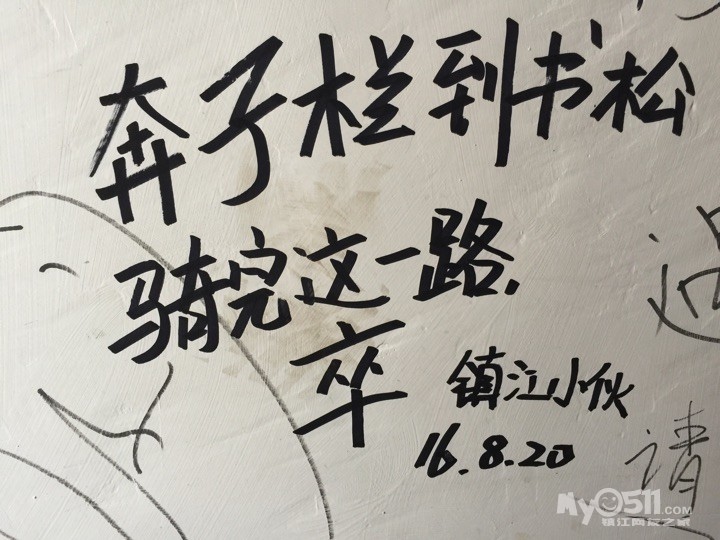 奔子栏到书松
骑完这一路.
卒
镇江小伙
16.8.20
请
My0511.com
镇江网友之家